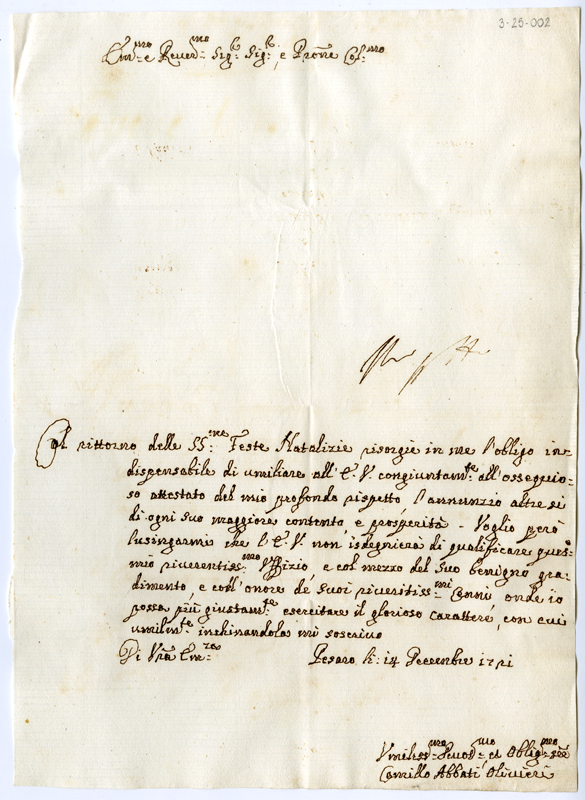 3-25-002
Em:mo e Rever:mo Sig:r Sig:r, e Prone Col:mo
Col rittorno delle SS:me Feste Natalizie risorgie in me l'obligo in=
dispensabile di umiliare all'E.V. congiuntam:te all'ossequio=
so attestato del mio profondo rispetto l'annunzio altresi
di ogni suo maggiore contento, e prosperità. Voglio però
lusingarmi che l'E.V. non isdegnierà di qualificare questo
mio riverentiss:mo Uffizio, e col mezzo del suo benigno gra=
dimento, e coll'onore de suoi riveritiss:mi Cenni, onde io
possa più giustam:te esercitare il glorioso carattere, con cui
umilm:te inchinandola mi soscrivo
Di Vra Em:za Pesaro li: 14 Decembre 1721
Umiliss:mo Devot:mo, et Oblig:mo Ser:re
Camillo Abbati Olivieri